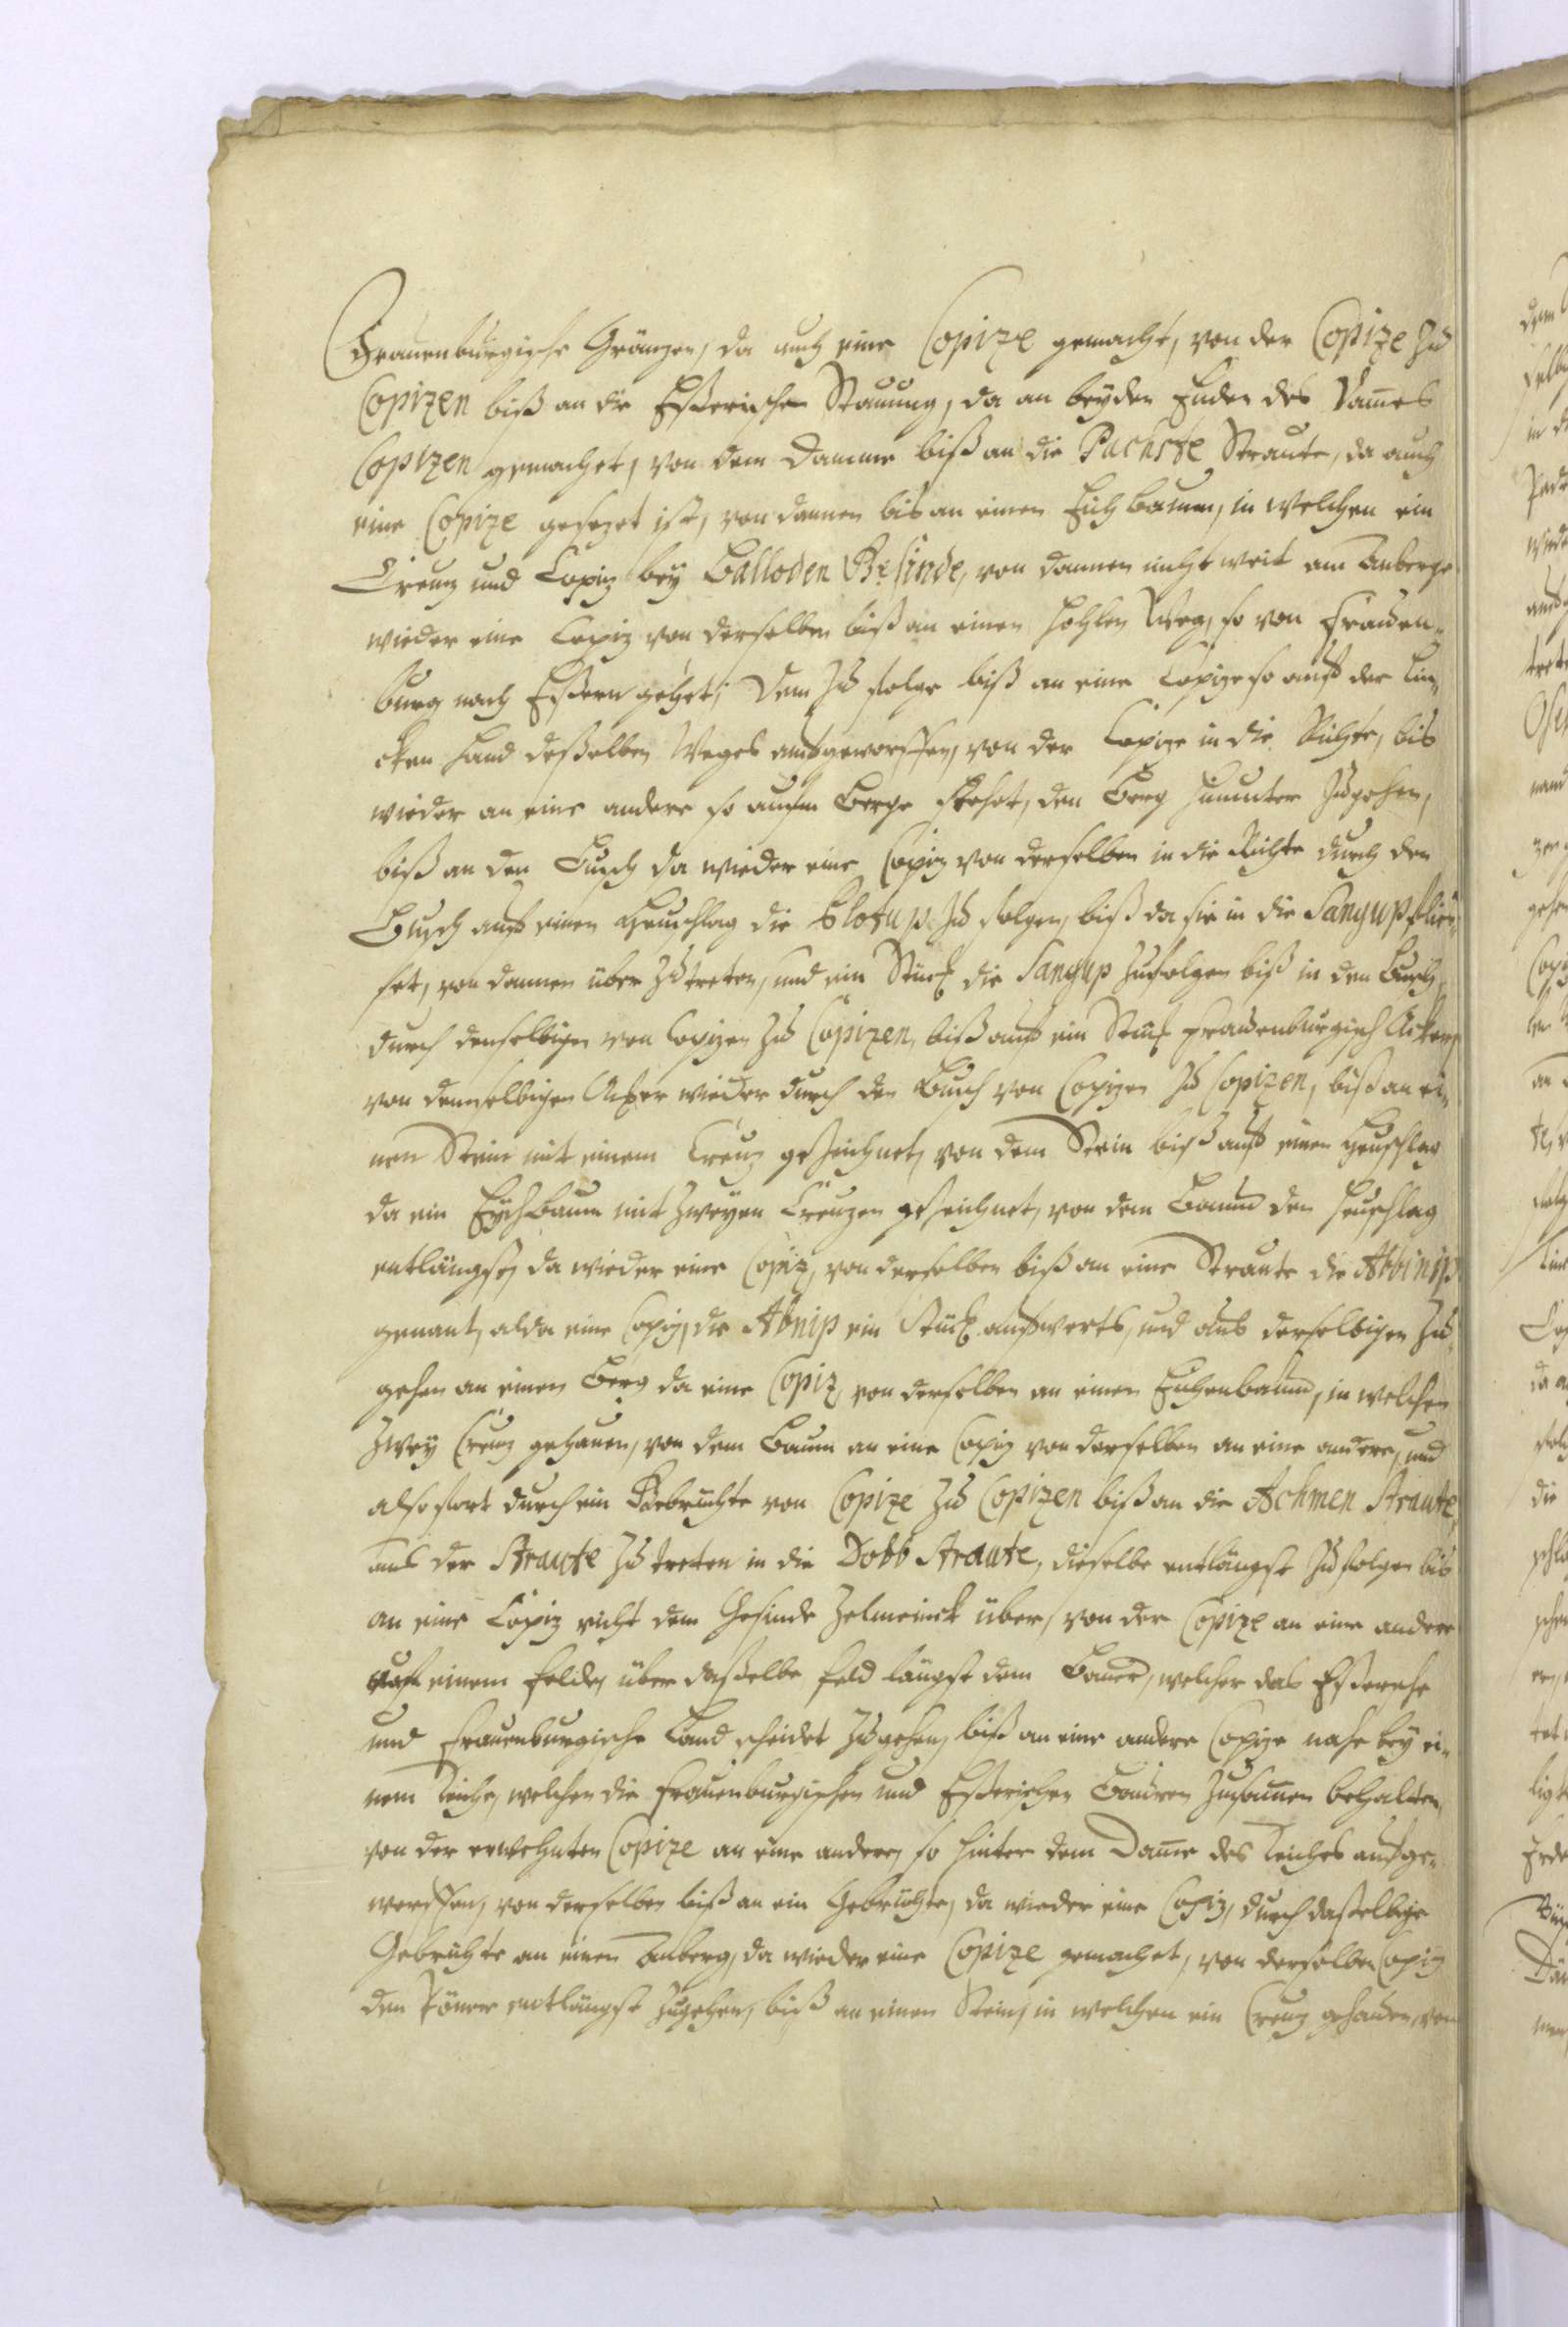 Frauenburgische Gräntzen, da auch eine Copize gemacht, von der Copize zu
Copizen biß an die Eßerische Stauung, da an beyden Enden des Dam̃es
Copizen gemachet, von dem Damme biß an die Puchste Straute, da auch
eine Copize gesezet ist, von dannen bis an einen Eich baum, in welchen ein
Creuz und Copiz bey Balloden Gesinde, von dannen nicht weit am Anberge
wieder eine Copiz von derselben biß an einen hohlen Weg, so von Frauen¬
burg nach Eßern gehet; dem zu folge biß an eine Copize so auff der Lin¬
cken Hand deßelben Weges aufgeworffen, von der Copize in die Richte, bis
wieder an eine andere so aufm Berge stehet, den Berg hinunter zu gehen,
biß an den Busch da wieder eine Copiz von derselben in die Richte durch den
Busch auff einen Heuschlag die Clotup zu folgen, biß da sie in die Sangup flie¬
set, von dannen über zu treten, und ein Stück die Sangup zufolgen biß in den Busch,
durch denselbigen von Copizen zu Copizen, biß auff ein Stück Frauenburgisch Acker,
von demselbigen Acker wieder durch den Busch von Copizen zu Copizen, biß an ei¬
nen Stein mit einem Creuz gezeichnet, von dem Stein biß auff einen Heuschlag
da ein Eychbaum mit zweyen Creuzen gezeichnet, von dem Baum den Heuschlag
entlängst, da wieder eine Copiz, von derselben biß an eine Straute die Abbinip
genant, alda eine Copiz, die Abnip ein Stück auffwerts, und aus derselbigen zu
gehen an einen Berg da eine Copiz, von derselben an einen Eichenbaum, in welchen
zwey Creuz gehauen, von dem Baum an eine Copiz von derselben an eine andere, und
also fort durch ein Gebrüchte von Copize zu Copizen biß an die Achmen Straute,
aus der Straute zu treten in die Dobb Straute, dieselbe entlängst zu folgen bis
an eine Copiz richt dem Gesinde Zelmeinck über, von der Copize an eine andere
auf einem Felde, über daßelbe Feld längst dem Rain, welcher das Eßersche
und Frauenburgische Land scheidet zu gehen, biß an eine andere Copize nahe bey ei¬
nem Teiche, welchen die Frauenburgischen und Eßerischen Bauren zusam̃en behalten,
von der erwehnten Copize an eine andere, so hinter dem Dam̃e des Teiches aufge¬
worffen, von derselben biß an ein Gebrüchte, da wieder eine Copiz, durch daßelbige
Gebrüchte an einen Anberg, da wieder eine Copize gemachet, von derselben Copiz
den entlängst zugehen, biß an einen Stein, in welchen ein Creuz gehauen, von